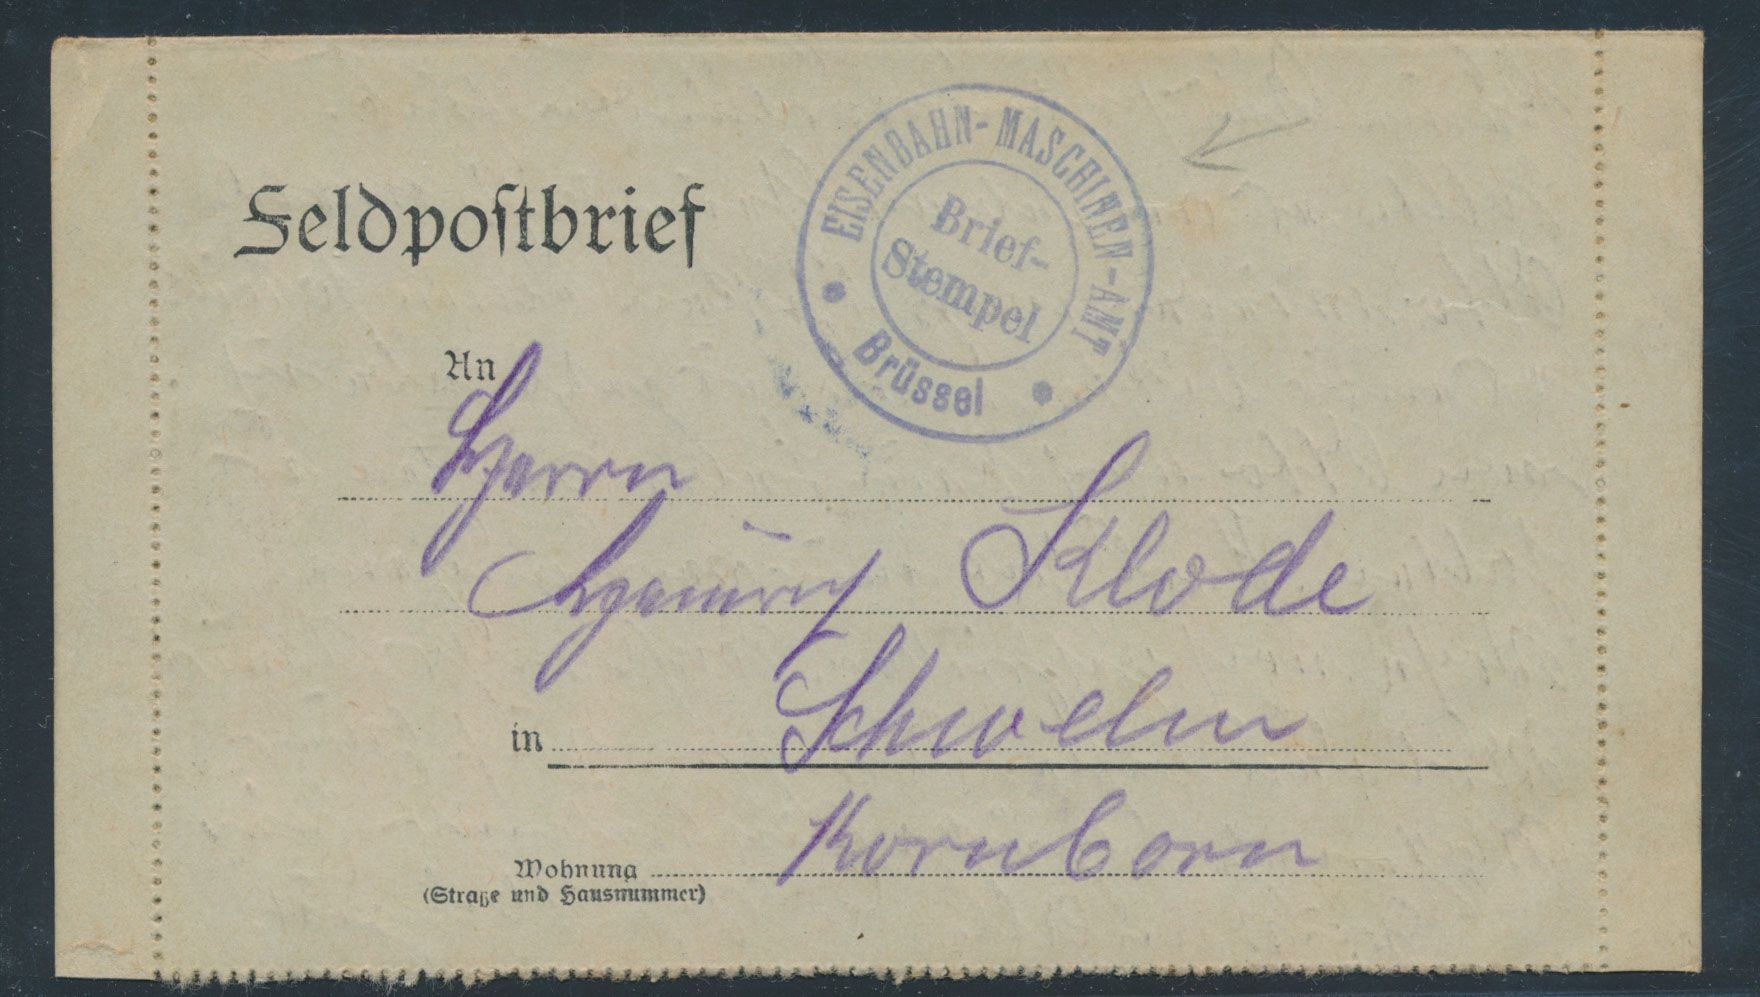 Feldpostbrief
EISENBAHN-MASCHINEN-AMT
Brief-
Stempel
Brüssel
An
Herrn
Heinrich Klode
in Schwelm
Kornborn
Wohnung
(Straße und Hausnummer)